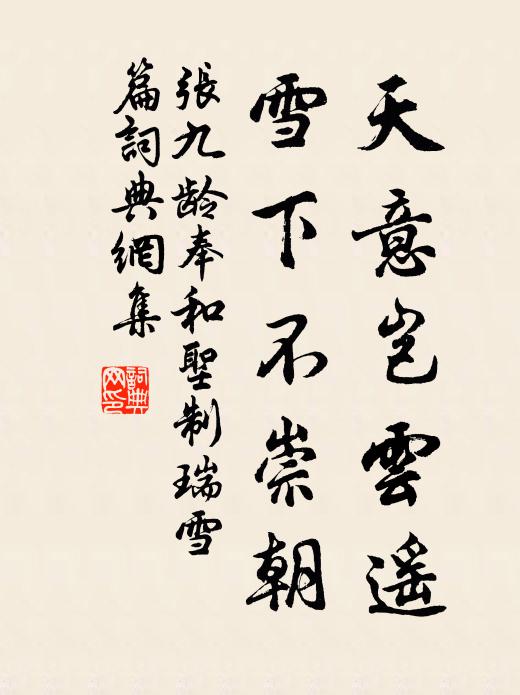 天意豈雲遥
雪下不崇朝
張九龄奉和聖制瑞雪
篇詞典網集
詞典
网印